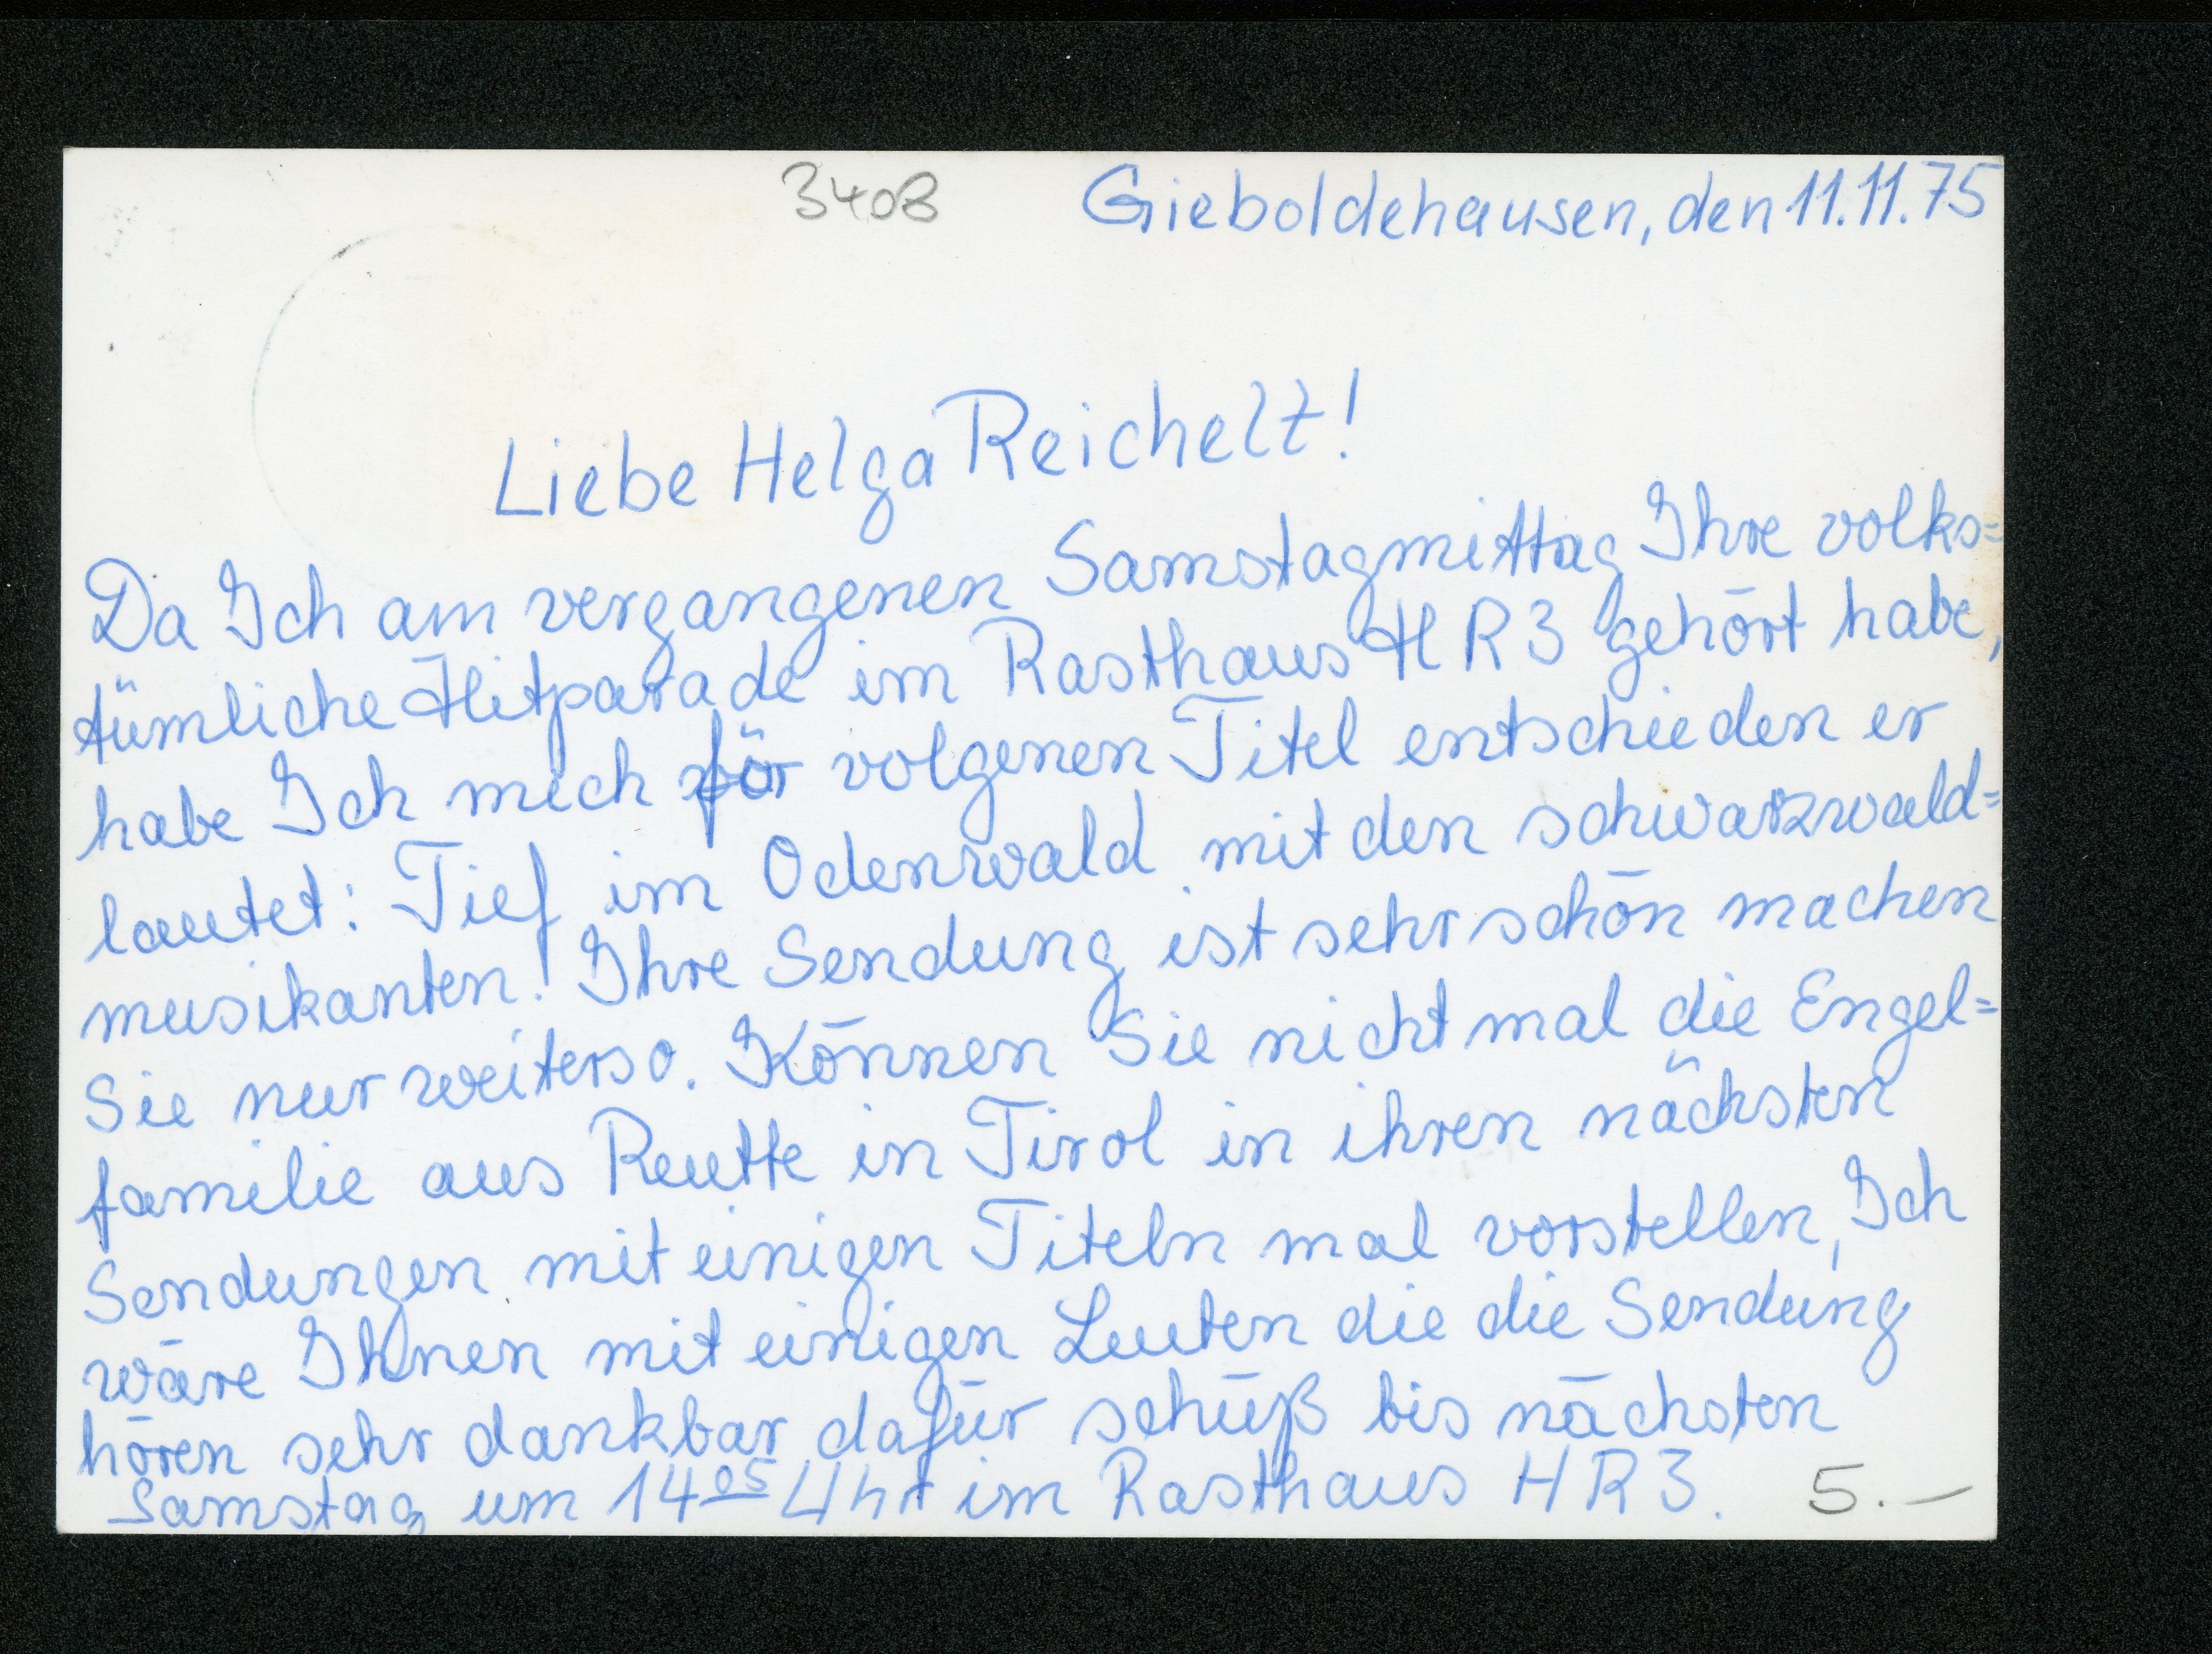 3408
Gieboldehausen, den 11.11.75
Liebe Helga Reichelt!
Da Ich am vergangenen Samstagmittag Ihre volks=
tümliche Hitparade im Rasthaus HR3 gehört habe,
habe Ich mich für volgenen Titel entschieden er
lautet: Tief im Odenwald mit den schwarzwald=
musikanten! Ihre Sendung ist sehr schön machen
Sie nur weiterso. Können Sie nicht mal die Engel=
familie aus Reutte in Tirol in ihren nächsten
Sendungen mit einigen Titeln mal vorstellen, Ich
wäre Ihnen mit einigen Leuten die die Sendung
hören sehr dankbar dafür schüß bis nächsten
Samstag um 14 05 Uhr im Rasthaus HR3.
5.—